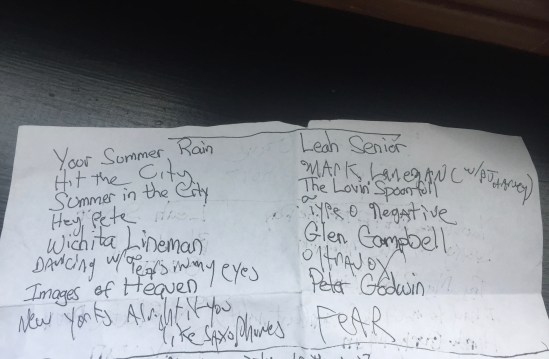 Your Summer Rain
Hit the City
Summer in the City
Hey Pete
Wichita Lineman
DANCING w/
Tears in my eyes
Images of Heaven
New York's Alright if You
Like SAXOPHONES
Leah Senior
MARK LANEGAN (w/PJ HARVEY)
The Lovin' Spoonful
TYPE O Negative
Glen Campbell
ULTRAVOX
Peter Godwin
FEAR